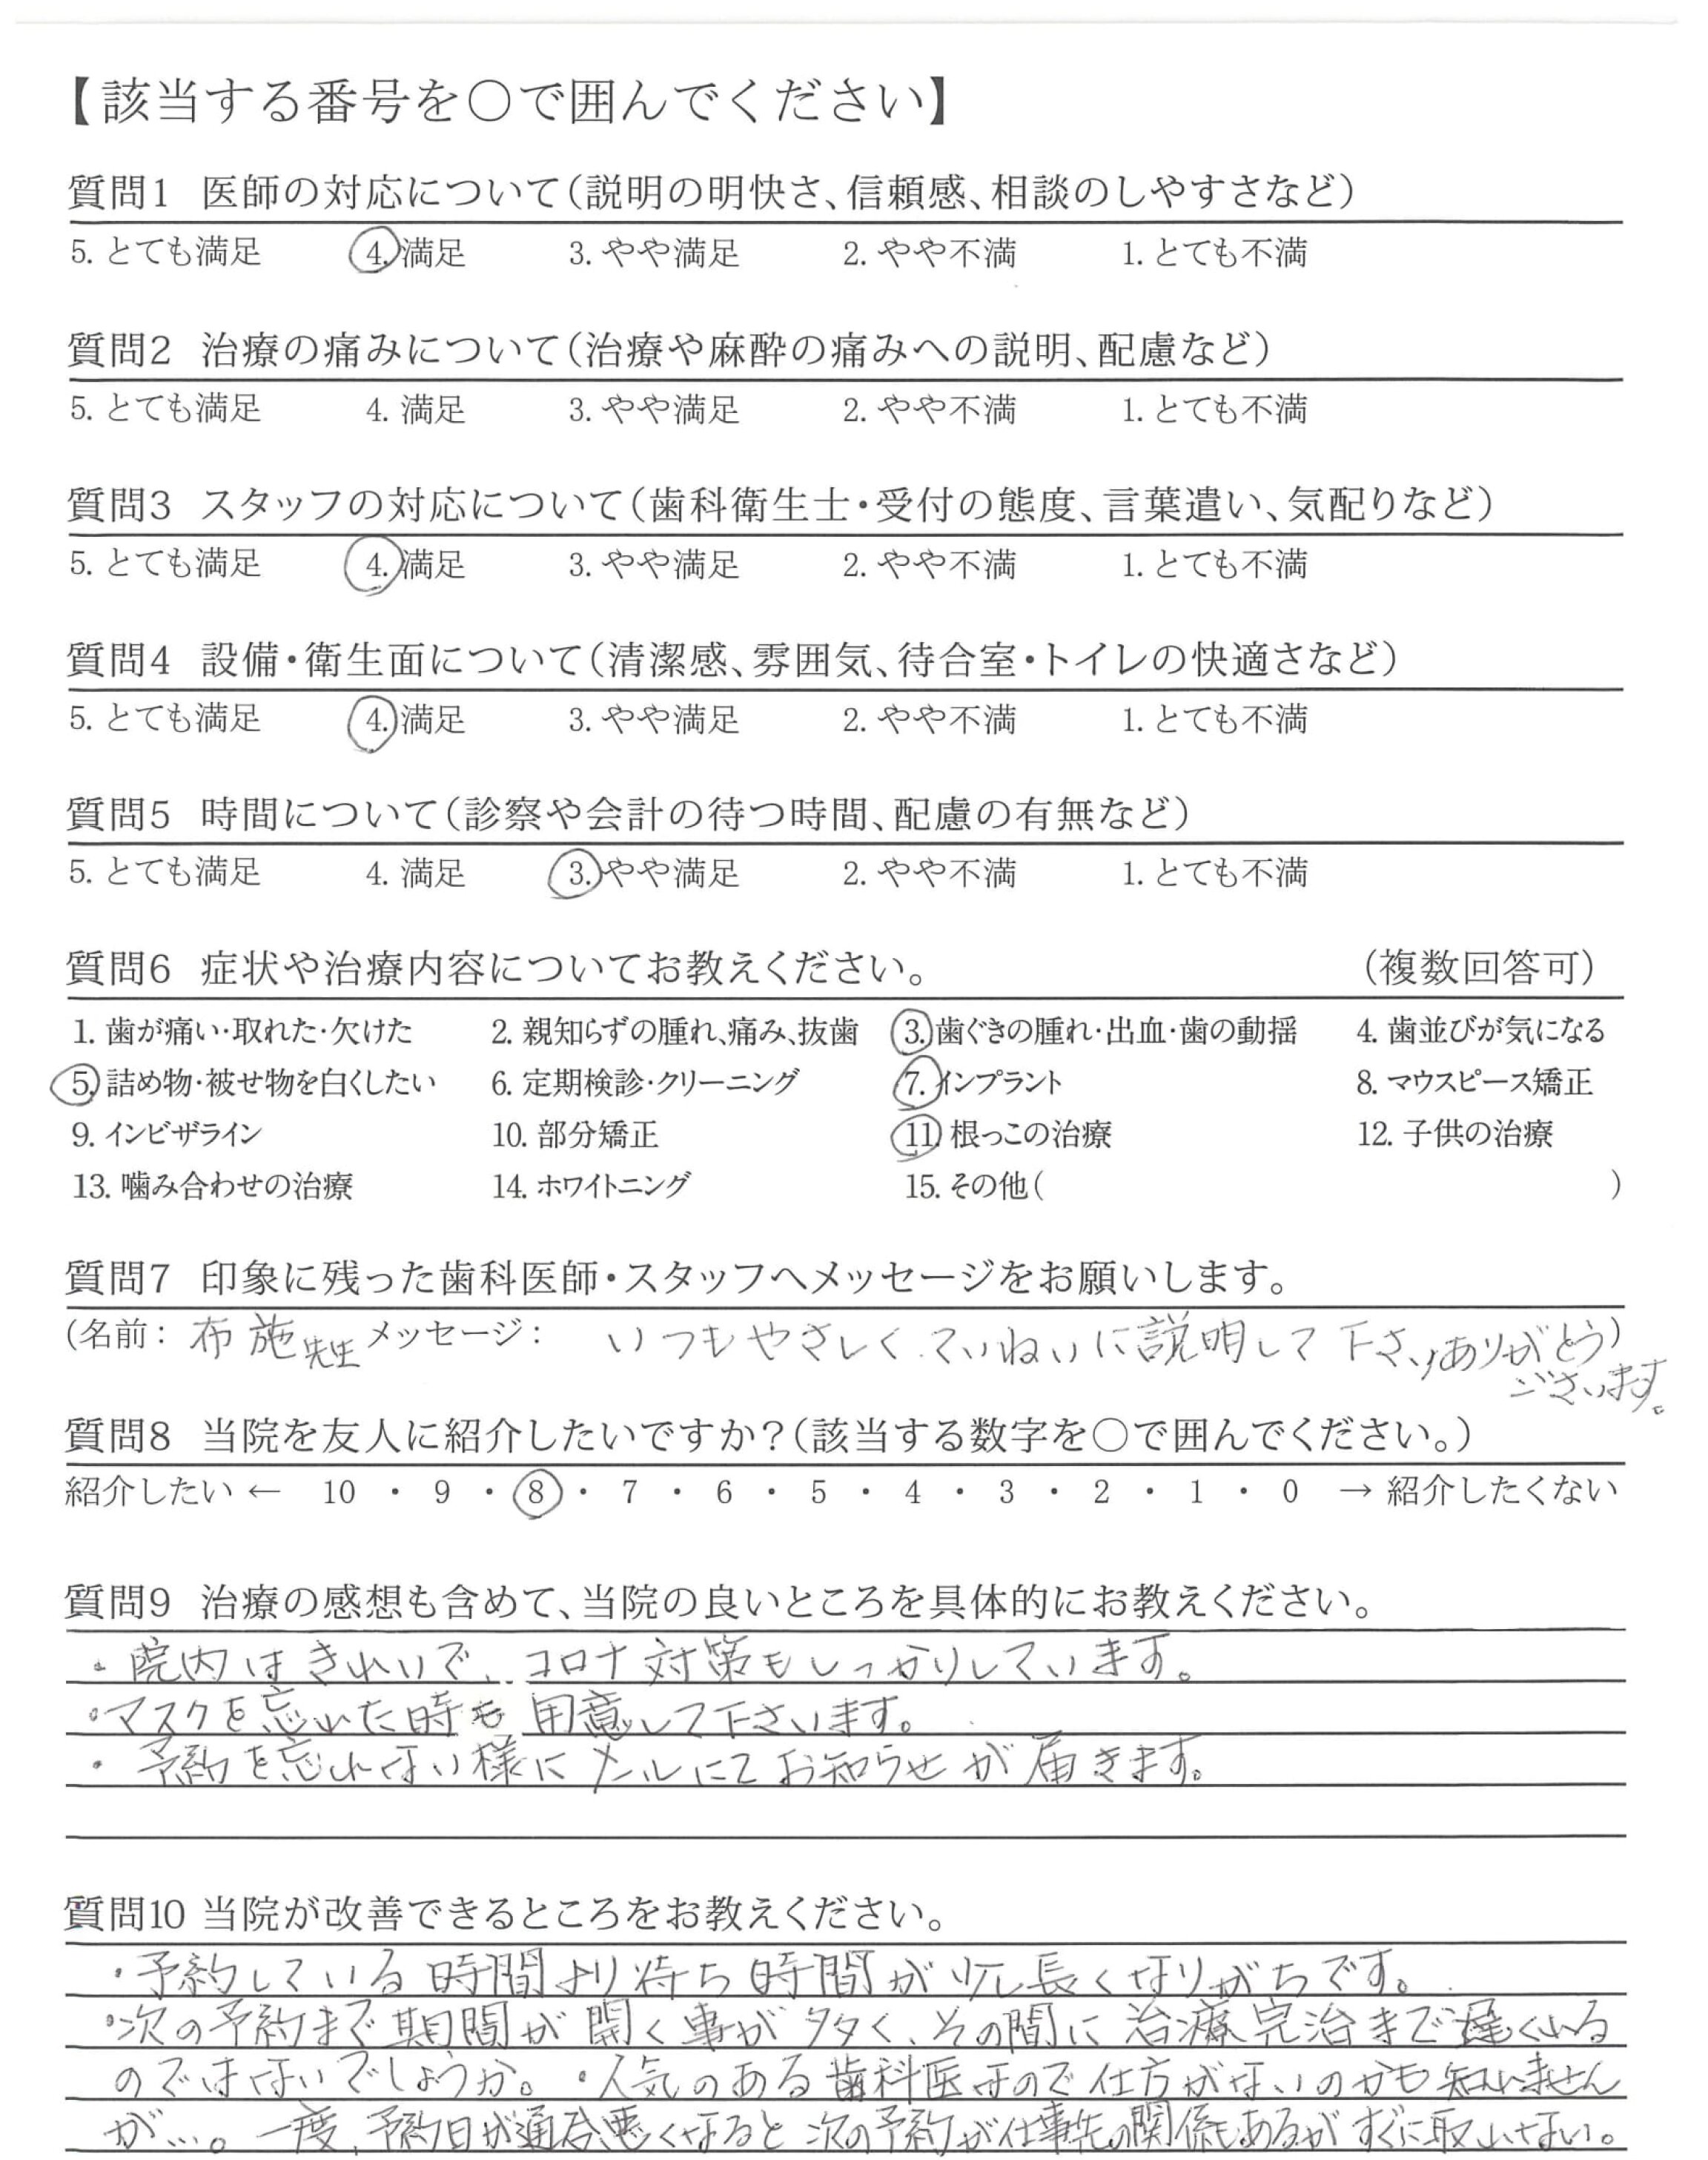 【該当する番号を○で囲んでください】
質問1 医師の対応について(説明の明快さ、信頼感、相談のしやすさなど)
5. とても満足 4. 満足 3. やや満足 2. やや不満 1. とても不満
質問2 治療の痛みについて(治療や麻酔の痛みへの説明、配慮など)
5. とても満足 4. 満足 3. やや満足 2. やや不満 1. とても不満
質問3 スタッフの対応について(歯科衛生士・受付の態度、言葉遣い、気配りなど)
5. とても満足 4. 満足 3. やや満足 2. やや不満 1. とても不満
質問4 設備・衛生面について(清潔感、雰囲気、待合室・トイレの快適さなど)
5. とても満足 4. 満足 3. やや満足 2. やや不満 1. とても不満
質問5 時間について(診察や会計の待つ時間、配慮の有無など)
5. とても満足 4. 満足 3. やや満足 2. やや不満 1. とても不満
質問6 症状や治療内容についてお教えください。 (複数回答可)
1. 歯が痛い・取れた・欠けた 2. 親知らずの腫れ、痛み、抜歯 3. 歯ぐきの腫れ・出血・歯の動揺 4. 歯並びが気になる
5. 詰め物・被せ物を白くしたい 6. 定期検診・クリーニング 7. インプラント 8. マウスピース矯正
9. インビザライン 10. 部分矯正 11. 根っこの治療 12. 子供の治療
13. 噛み合わせの治療 14. ホワイトニング 15. その他( )
質問7 印象に残った歯科医師・スタッフへメッセージをお願いします。
(名前: 布施先生 メッセージ: いつもやさしくていねいに説明して下さいありがとう)
ございます。
質問8 当院を友人に紹介したいですか?(該当する数字を○で囲んでください。)
紹介したい ← 10 ・ 9 ・ 8 ・ 7 ・ 6 ・ 5 ・ 4 ・ 3 ・ 2 ・ 1 ・ 0 → 紹介したくない
質問9 治療の感想も含めて、当院の良いところを具体的にお教えください。
・院内はきれいで、コロナ対策もしっかりしています。
・マスクを忘れた時も用意して下さいます。
・予約を忘れない様にメールにてお知らせが届きます。
質問10 当院が改善できるところをお教えください。
・予約している時間より待ち時間が少し長くなりがちです。
・次の予約まで期間が開く事が多く、その間に治療完治まで遅くいる
のではないでしょうか。・人気のある歯科医なので仕方がないのかも知れません
が…。一度、予約日が通合悪くなると次の予約が仕事先の関係もあるがすぐに取れない。